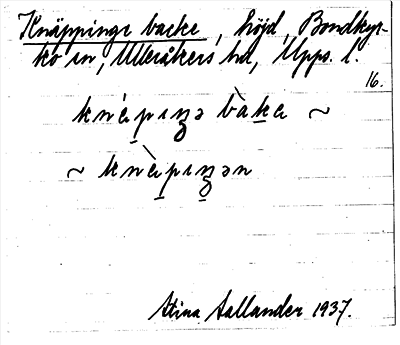 Knäppinge backe, höjd, Bondkyr-
ko sn, Ulleråkers hd, Upps. l.
16.
knä̀pıŋə bàkə ~
~ knä̀pıŋən
Stina Sallander 1937.